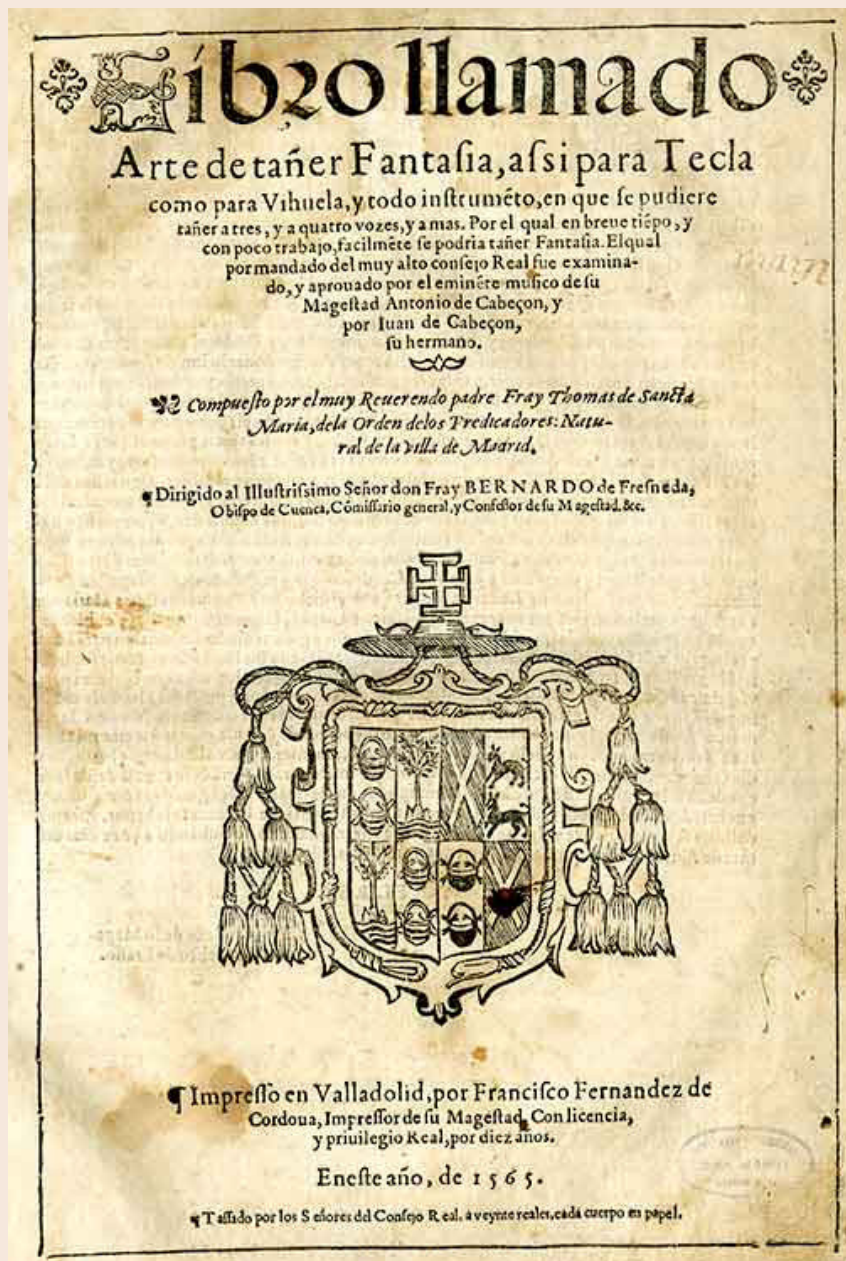 Libro llamado
Arte de tañer Fantasia, assi para Tecla
como para Vihuela, y todo instrumẽto, en que se pudiere
tañer a tres, y a quatro vozes, y a mas. Por el qual en breue tiẽpo, y
con poco trabajo, facilmẽte se podria tañer Fantasia. Elqual
por mandado del muy alto consejo Real fue examina-
do, y aprouado por el eminẽte musico de su
Magestad Antonio de Cabeçon, y
por Iuan de Cabeçon,
su hermano.
Compuesto por el muy Reuerendo padre Fray Thomas de Sancta
Maria, dela Orden delos Predicadores: Natu-
ral de la villa de Madrid.
¶ Dirigido al Illustrissimo Señor don Fray BERNARDO de Fresneda,
Obispo de Cuenca, Cõmissario general, y Confessor de su Magestad. &c.
¶ Impresso en Valladolid, por Francisco Fernandez de
Cordoua, Impressor de su Magestad. Con licencia,
y priuilegio Real, por diez años.
Eneste año, de 1565.
¶ Tassado por los Señores del Consejo Real. a veynte reales, cada cuerpo en papel.